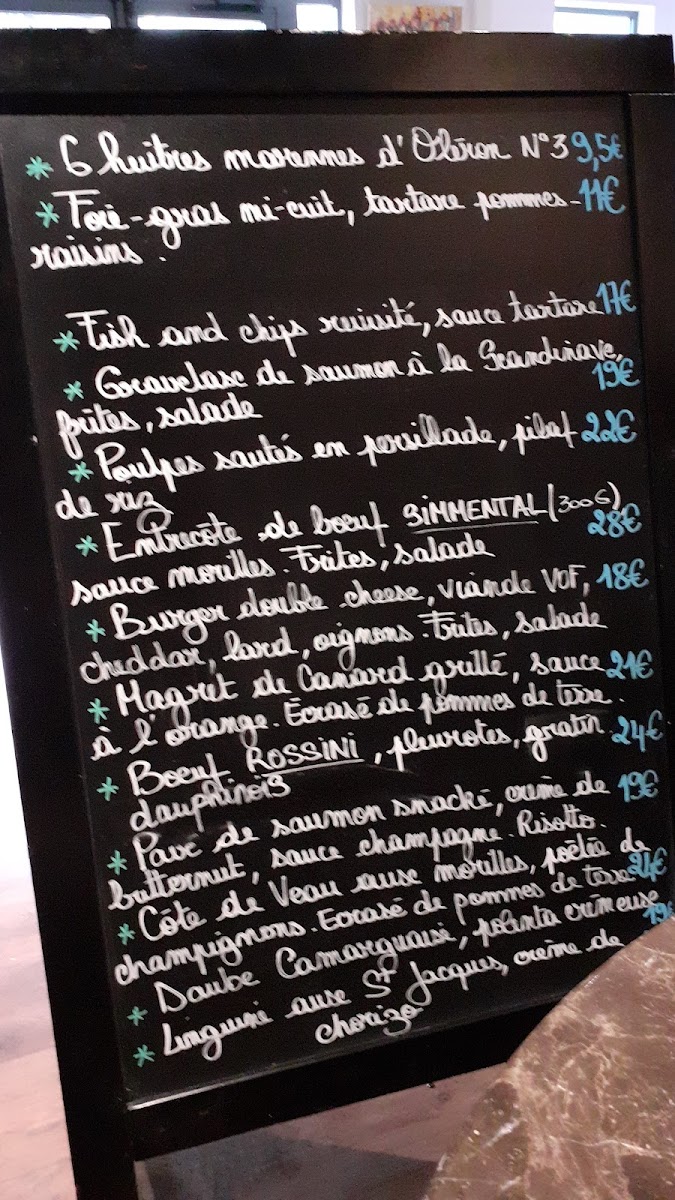 * 6 huitres marennes d'Oléron N°3 9,5€
* Foie-gras mi-cuit, tartare pommes- 11€
raisins.
* Fish and chips revisité, sauce tartare 17€
* Gravelax de saumon à la Scandinave, 19€
frites, salade
* Poulpes sautés en persillade, pilaf 22€
de riz
* Entrecôte de boeuf SIMMENTAL (300G) 28€
sauce morilles. Frites, salade
* Burger double cheese, viande VOF, 18€
cheddar, lard, oignons. Frites, salade
* Magret de Canard grillé, sauce 21€
à l'orange. Ecrasé de pommes de terre.
* Boeuf ROSSINI, pleurotes, gratin 24€
dauphinois
* Pavé de saumon snacké, crème de 19€
butternut, sauce champagne. Risotto.
* Côte de Veau aux morilles, poêlée de 24€
champignons. Ecrasé de pommes de terre
* Daube Camarguaise, polenta crémeuse 19€
* Linguine aux St Jacques, crème de
chorizo